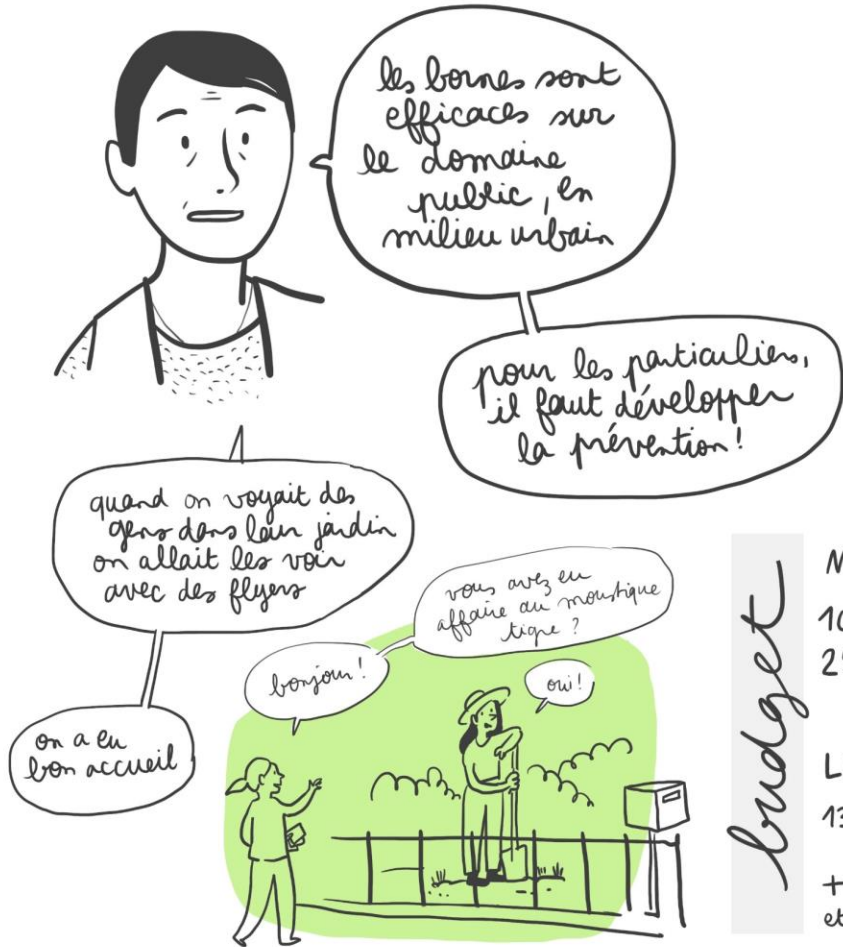 les bornes sont
efficaces sur
le domaine
public, en
milieu urbain
pour les particuliers,
il faut développer
la prévention!
quand on voyait des
gens dans leur jardin
on allait les voir
avec des flyers
on a eu
bon accueil
bonjour!
vous avez eu
affaire au moustique
tigre?
oui!
budget
N
10
2
L
13
+
et